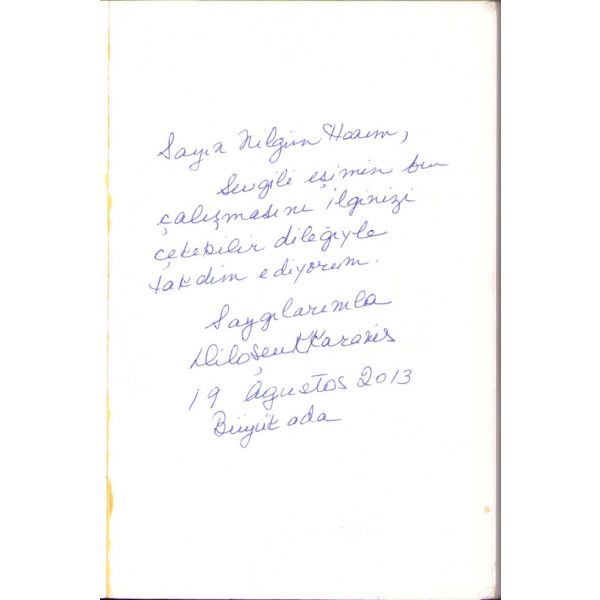 Sayın Nilgün Hanım,
Sevgili eşimin bu
çalışmasını ilginizi
çekebilir dileğiyle
takdim ediyorum.
Saygılarımla
19 Ağustos 2013
Büyükada